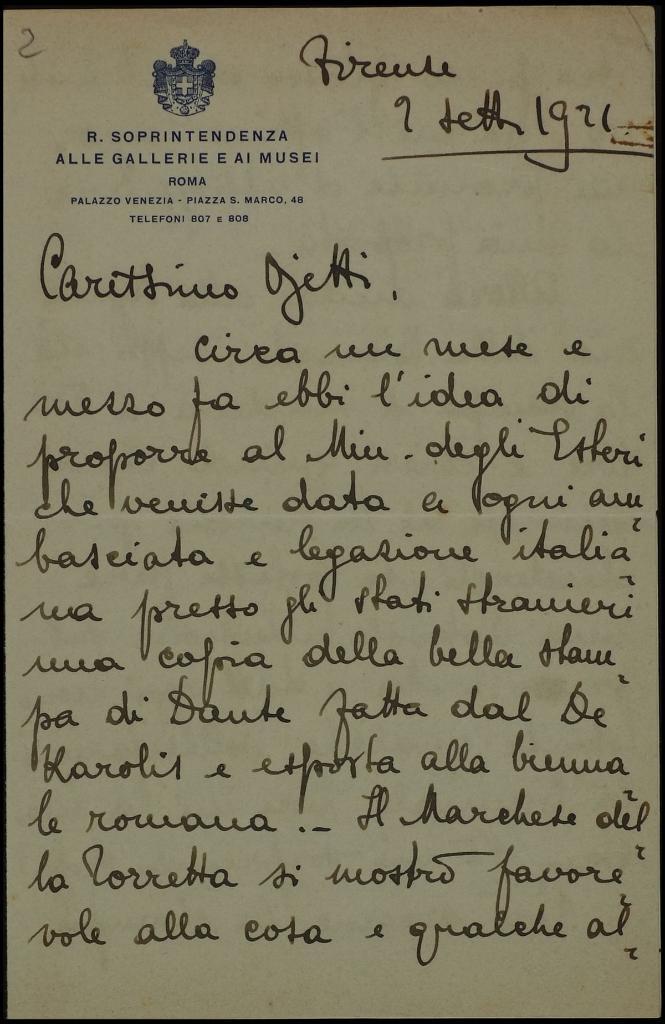 2
Firenze
2 sett. 1921
R. SOPRINTENDENZA
ALLE GALLERIE E AI MUSEI
ROMA
PALAZZO VENEZIA - PIAZZA S. MARCO, 48
TELEFONI 807 E 808
Carissimo Ojetti,
circa un mese e
mezzo fa ebbi l'idea di
proporre al Min. degli Esteri
che venisse data a ogni am-
basciata e legazione italia-
na presso gli stati stranieri
una copia della bella stam-
pa di Dante fatta dal De
Karolis e esposta alla bienna
le romana. - Il Marchese del-
la Torretta si mostrò favore-
vole alla cosa e qualche al-